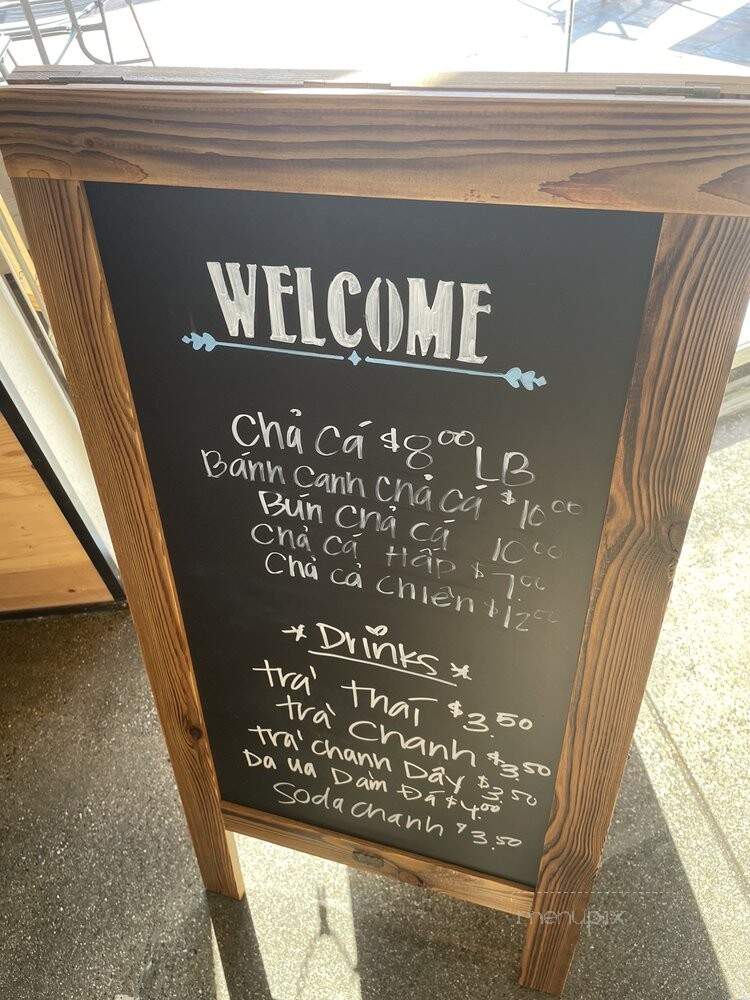 WELCOME
Chả cá $8.00 LB
Bánh canh chả cá $10.00
Bún chả cá 10.00
Chả cá Hấp $7.00
Chả cá chiên $12.00
* Drinks *
trà thaí $3.50
trà chanh $3.50
trà chanh Dây $3.50
Da ua Dầm Đá $4.00
Soda chanh $3.50
menupix